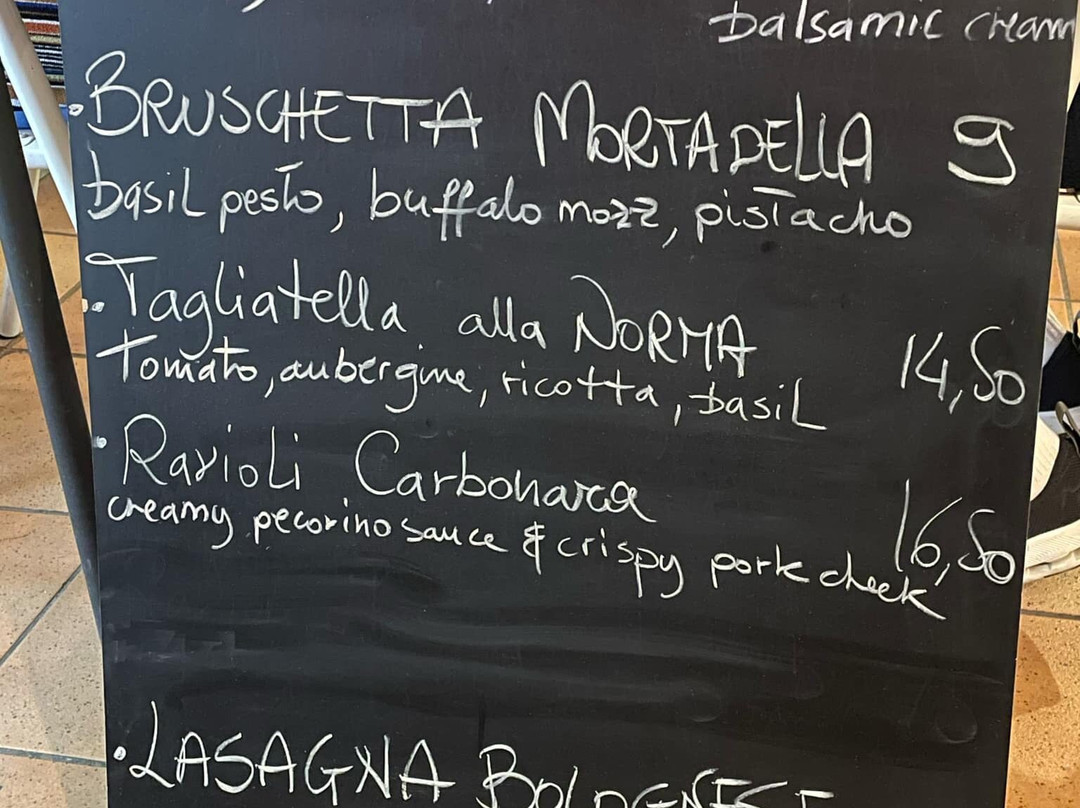 balsamic cream
• BRUSCHETTA MORTADELLA 9
basil pesto, buffalo mozz, pistacho
• Tagliatella alla NORMA 14,50
tomato, aubergine, ricotta, basil
• Ravioli Carbonara 16,50
creamy pecorino sauce & crispy pork cheek
• LASAGNA BOLOGNESE